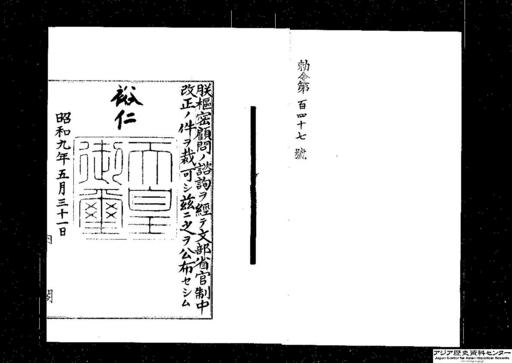 勅令第百四十七號
朕樞密顧問ノ諮詢ヲ經テ文部省官制中
改正ノ件ヲ裁可シ茲ニ之ヲ公布セシム
裕仁
天皇
御璽
昭和九年五月三十一日
内閣
アジア歴史資料センター
Japan Center for Asian Historical Records